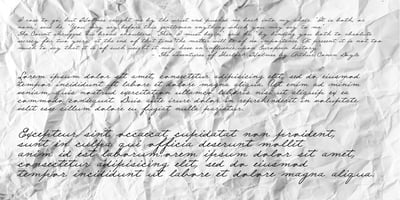 I rose to go, but Holmes caught me by the wrist and pushed me back into my chair. "It is both, or
none," said he. "You may say before this gentleman anything which you may say to me."
The Count shrugged his broad shoulders. "Then I must begin," said he, "by binding you both to absolute
secrecy for two years; at the end of that time the matter will be of no importance. At present it is not too
much to say that it is of such weight it may have an influence upon European history."
The Adventures of Sherlock Holmes by Arthur Conan Doyle
Lorem ipsum dolor sit amet, consectetur adipisicing elit, sed do eiusmod
tempor incididunt ut labore et dolore magna aliqua. Ut enim ad minim
veniam, quis nostrud exercitation ullamco laboris nisi ut aliquip ex ea
commodo consequat. Duis aute irure dolor in reprehenderit in voluptate
velit esse cillum dolore eu fugiat nulla pariatur.
Excepteur sint occaecat cupidatat non proident,
sunt in culpa qui officia deserunt mollit
anim id est laborum.orem ipsum dolor sit amet,
consectetur adipisicing elit, sed do eiusmod
tempor incididunt ut labore et dolore magna aliqua.